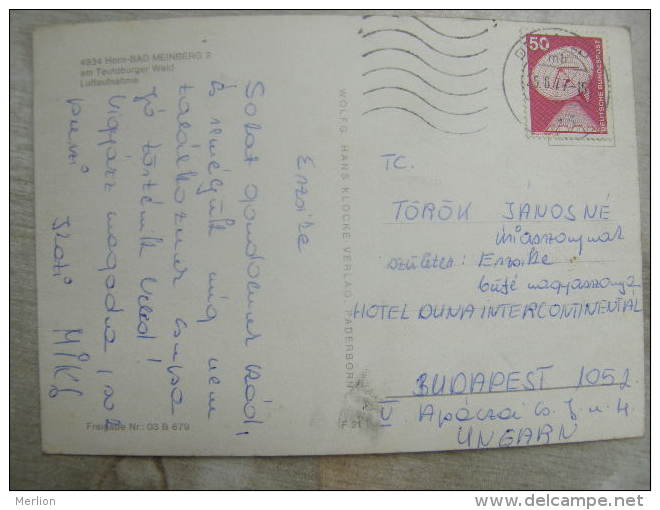 4934 Horn-BAD MEINBERG 2
am Teutoburger Wald
Luftaufnahme
Erzsike
Sokat gondolunk Rád,
és reméljük míg nem
találkozunk csupa
jó történik Veled!
Vigyázz magadra, sok
puszi
Freigabe Nr.: 03 B 679
WOLFG. HANS KLOCKE VERLAG, PADERBORN
F 21
50
DEUTSCHE BUNDESPOST
TC.
TÖRÖK JÁNOSNÉ
úriasszonynak
született: Erzsike
büfé nagyasszonya
HOTEL DUNA INTERCONTINENTAL
BUDAPEST 1052
V Apáczai Cs. J. u. 4
UNGARN
Merlion
delcampe.net